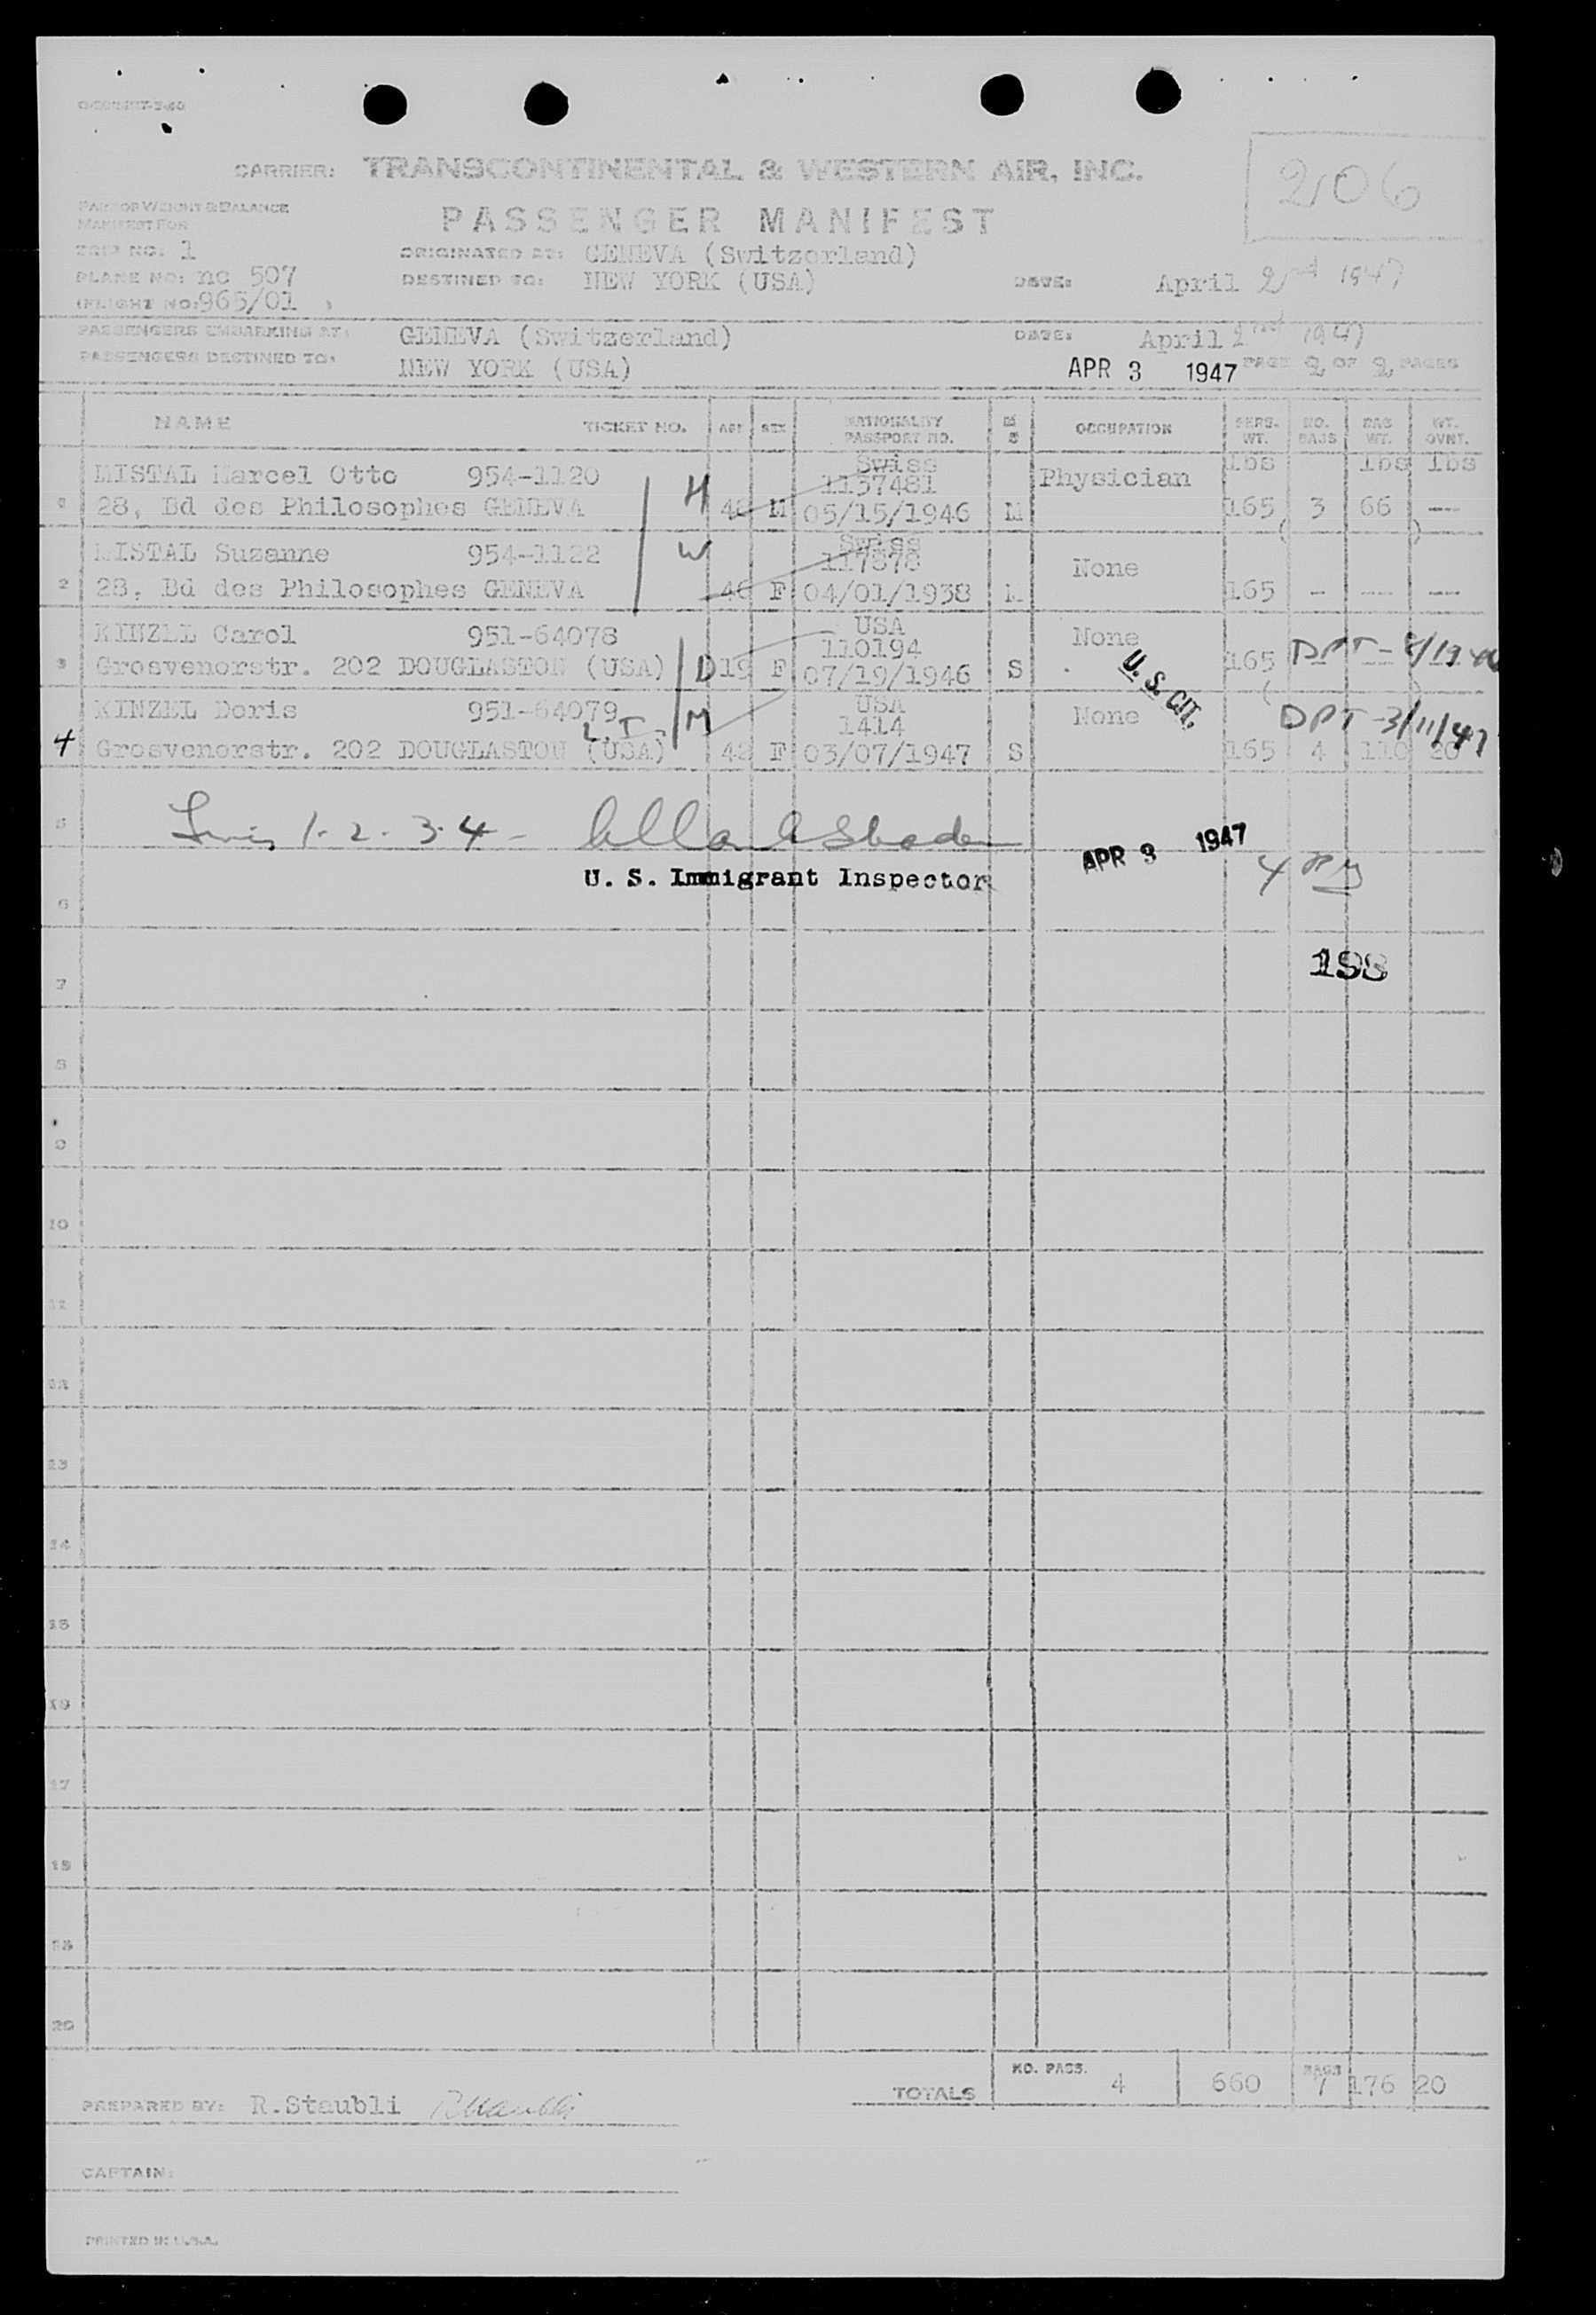 CARRIER: TRANSCONTINENTAL & WESTERN AIR, INC.
206
PASSENGER MANIFEST
PAX FOR WEIGHT & BALANCE
MANIFEST FOR
TRIP NO: 1
ORIGINATED AT: GENEVA (Switzerland)
PLANE NO: nc 507
DESTINED TO: NEW YORK (USA)
DATE: April 2nd 1947
FLIGHT NO: 965/01
PASSENGERS EMBARKING AT: GENEVA (Switzerland) DATE: April 2nd 1947
PASSENGERS DESTINED TO: NEW YORK (USA) APR 3 1947 PAGE 2 OF 2 PAGES
NAME TICKET NO. AGE SEX NATIONALITY PASSPORT NO. OCCUPATION PERS. WT. NO. BAGS BAG WT. WT. OVWT.
MISTAL Marcel Otto 954-1120 H Swiss 1137481 Physician lbs lbs lbs
28, Bd des Philosophes GENEVA 48 M 05/15/1946 M 165 3 66 ---
MISTAL Suzanne 954-1122 W Swiss 117878 None
2 28, Bd des Philosophes GENEVA 46 F 04/01/1938 M 165 - --- ---
KINZEL Carol 951-64078 USA 110194 None
3 Grosvenorstr. 202 DOUGLASTON (USA) D 19 F 07/19/1946 S 165 DPT -
U.S. CIT.
KINZEL Doris 951-64079 M USA 1414 None DPT - 3/11/47
L.I.
4 Grosvenorstr. 202 DOUGLASTON (USA) 48 F 03/07/1947 S 165 4 110 20
5 1-2-3-4- APR 3 1947
U. S. Immigrant Inspector 4 PM
6
198
7
8
9
10
11
12
13
14
15
16
17
18
19
20
TOTALS NO. PASS. 4 660 BAGS 7 176 20
PREPARED BY: R.Staubli RStaubli
CAPTAIN:
PRINTED IN U.S.A.